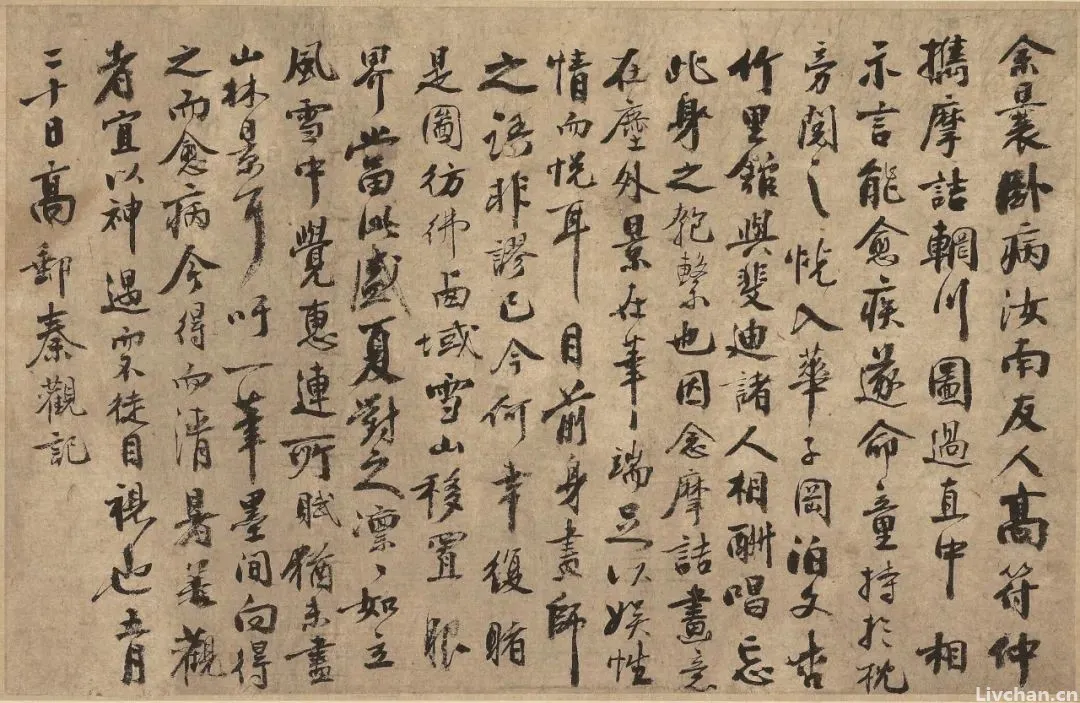 余曩卧病汝南友人高符仲
攜摩詰輞川圖過直中相
示言能愈疾遂命童持於枕
旁閱之恍入華子岡泊文杏
竹里館與斐迪諸人相酬唱忘
此身之匏繫也因念摩詰畫意
在塵外景在筆端足以娛性
情而悅耳目前身畫師
之語非謬已今何幸復睹
是圖彷彿西域雪山移置眼
界當此盛夏對之凜〻如立
風雪中覺惠連所賦猶未盡
山林景耳吁一筆墨間向得
之而愈病今得而清暑善觀
者宜以神遇而不徒目視也五月
二十日高郵秦觀記
Livchan.cn